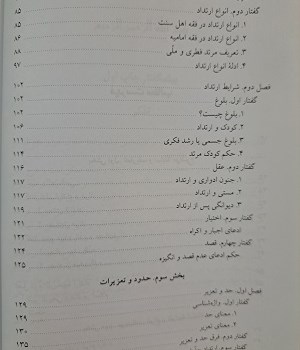 گفتار دوم. انواع ارتداد ۸۵
۱. انواع ارتداد در فقه اهل سنت ۸۵
۲. انواع ارتداد در فقه امامیه ۸۶
۳. تعریف مرتد فطری و ملّی ۸۸
۴. ادلهٔ انواع ارتداد ۹۷
فصل دوم. شرایط ارتداد ۱۰۲
گفتار اول. بلوغ ۱۰۲
۱. بلوغ چیست؟ ۱۰۲
۲. کودک و ارتداد ۱۰۶
۳. بلوغ جسمی یا رشد فکری ۱۱۱
۴. حکم کودک مرتد ۱۱۴
گفتار دوم. عقل ۱۱۶
۱. جنون ادواری و ارتداد ۱۱۷
۲. مستی و ارتداد ۱۱۷
۳. دیوانگی پس از ارتداد ۱۱۹
گفتار سوم. اختیار ۱۲۱
ادعای اجبار و اکراه ۱۲۲
گفتار چهارم. قصد ۱۲۴
حکم ادعای عدم قصد و انگیزه ۱۲۵
بخش سوم. حدود و تعزیرات
فصل اول. حد و تعزیر ۱۲۹
گفتار اول. واژه‌شناسی ۱۲۹
۱. معنای حد ۱۲۹
۲. معنای تعزیر ۱۳۰
گفتار دوم. فرق حد و تعزیر ۱۳۵
گفتار سوم. ارتداد